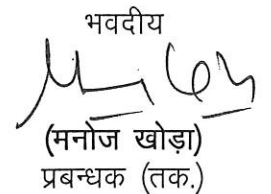 भवदीय
(मनोज खोड़ा)
प्रबन्धक (तक.)